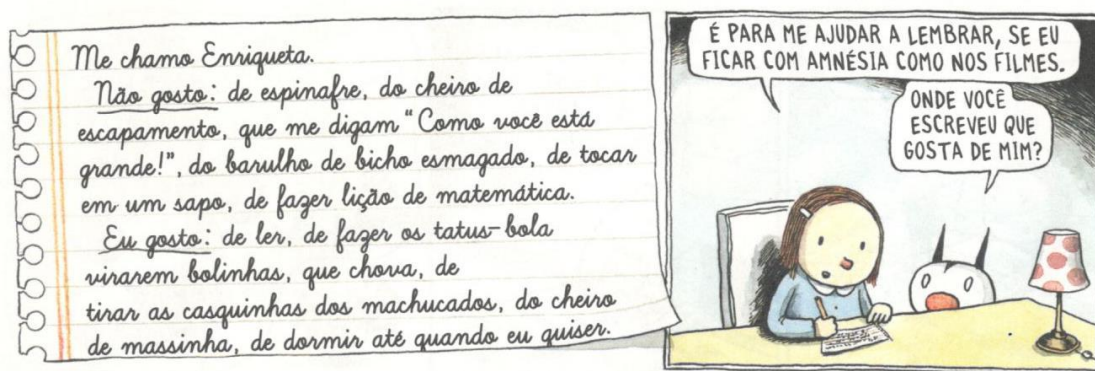 Me chamo Enriqueta.
Não gosto: de espinafre, do cheiro de
escapamento, que me digam "Como você está
grande!", do barulho de bicho esmagado, de tocar
em um sapo, de fazer lição de matemática.
Eu gosto: de ler, de fazer os tatus-bola
virarem bolinhas, que chova, de
tirar as casquinhas dos machucados, do cheiro
de massinha, de dormir até quando eu quiser.
É PARA ME AJUDAR A LEMBRAR, SE EU
FICAR COM AMNÉSIA COMO NOS FILMES.
ONDE VOCÊ
ESCREVEU QUE
GOSTA DE MIM?